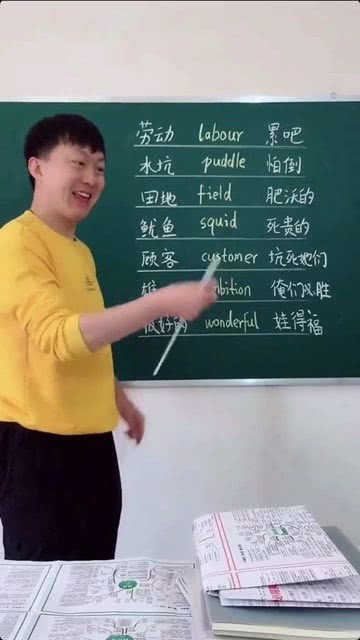 劳动 labour 累吧
水坑 puddle 怕倒
田地 field 肥沃的
鱿鱼 squid 死贵的
顾客 customer 坑死她们
mbition 俺们必胜
很好的 wonderful 娃得福